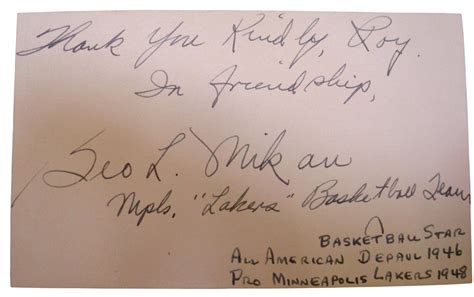 Thank You Kindly, Roy.
In friendship,
Geo L. Mikan
Mpls. "Lakers" Basketball Team
BASKETBALL STAR
ALL AMERICAN DEPAUL 1946
PRO MINNEAPOLIS LAKERS 1948